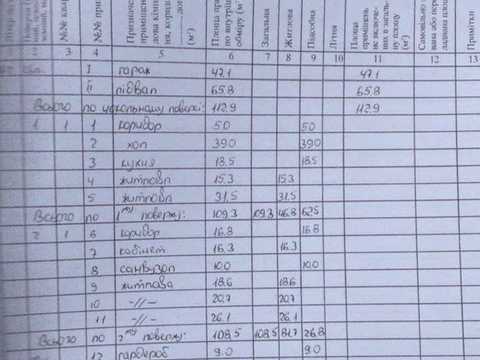 №№ 
Площа
по внутріш
обміру (м²)
Загальна
Житлова
Підсобна
Літня
Площа
приміщень,
(м²)
Примітки
3 4 5 6 7 8 9 10 11 12 13
I гараж 47.1 47.1
II підвал 65.8 65.8
Всього по цокольному поверсі: 112.9 112.9
1 1 1 коридор 5.0 5.0
2 хол 39.0 39.0
3 кухня 18.5 18.5
4 житлова 15.3 15.3
5 житлова 31.5 31.5
Всього по 1му поверху: 109.3 109.3 46.8 62.5
2 1 6 коридор 16.8 16.8
7 кабінет 16.3 16.3
8 санвузол 10.0 10.0
9 житлова 18.6 18.6
10 -//- 20.7 20.7
11 -//- 26.1 26.1
Всього по 2му поверху: 108.5 108.5 81.7 26.8
12 гардероб 9.0 9.0